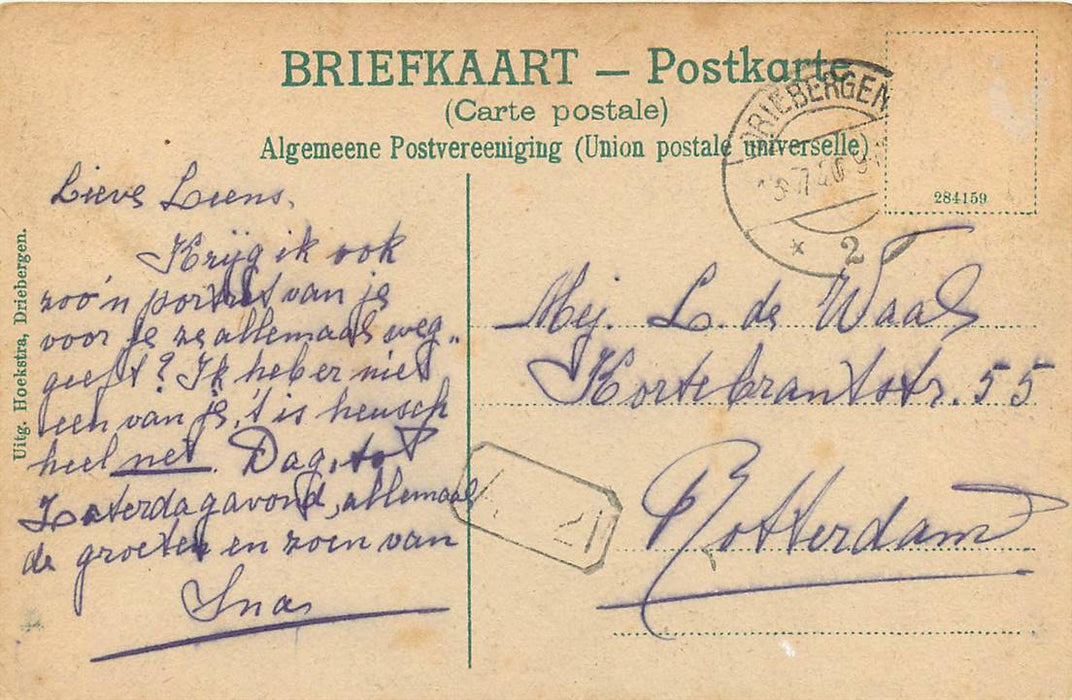 BRIEFKAART — Postkarte
(Carte postale)
Algemeene Postvereeniging (Union postale universelle)
DRIEBERGEN
2
284159
Uitg. Hoekstra, Driebergen.
Lieve Leens,
Krijg ik ook
zoo'n portret van je
voor je ze allemaal weg-
geeft? Ik heb er niet
een van je, 't is heusch
heel net. Dag, tot
Zaterdagavond, allemaal
de groeten en zoen van
Ina.
Mej. L. de Waal
Kortebrantstr. 55
Rotterdam